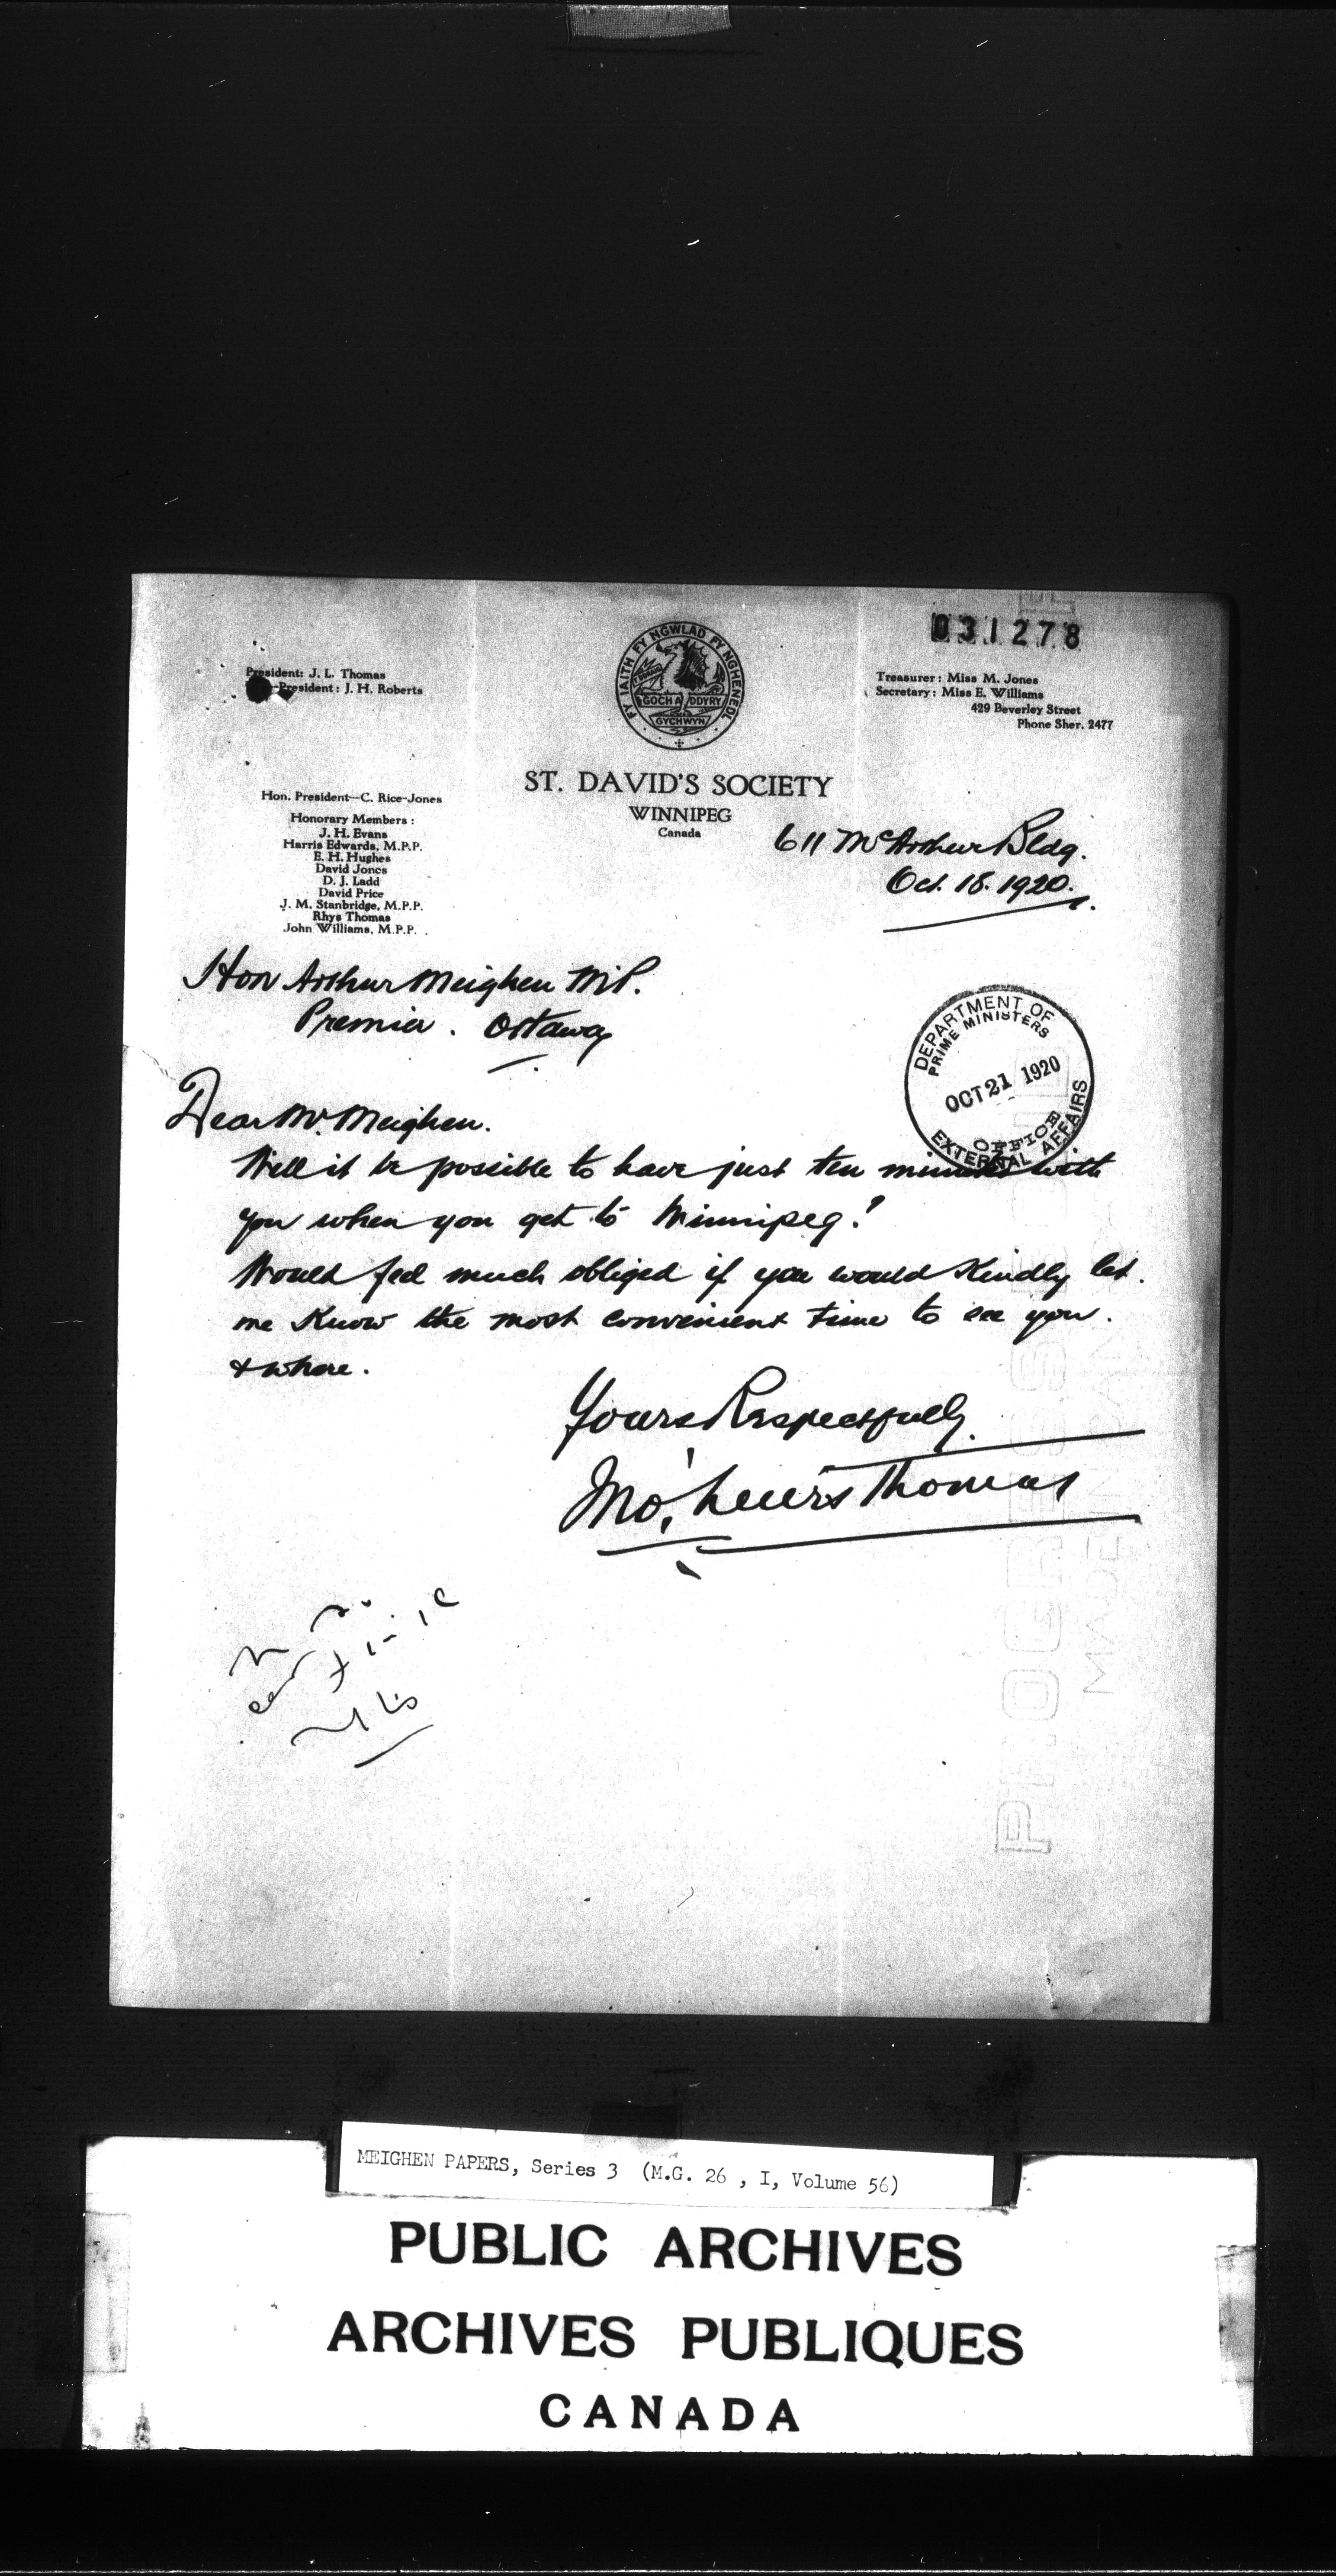 031278
President: J. L. Thomas
-President: J. H. Roberts
FY IAITH FY NGWLAD FY NGHENEDL
GOCH A DDYRY
GYCHWYN
Treasurer: Miss M. Jones
Secretary: Miss E. Williams
429 Beverley Street
Phone Sher. 2477
ST. DAVID'S SOCIETY
WINNIPEG
Canada
Hon. President—C. Rice-Jones
Honorary Members:
J. H. Evans
Harris Edwards, M.P.P.
E. H. Hughes
David Jones
D. J. Ladd
David Price
J. M. Stanbridge, M.P.P.
Rhys Thomas
John Williams, M.P.P.
611 McArthur Bldg.
Oct. 18. 1920.
Hon Arthur Meighen M.P.
Premier. Ottawa
DEPARTMENT OF
PRIME MINISTERS
OCT 21 1920
OFFICE
EXTERNAL AFFAIRS
Dear Mr. Meighen.
Will it be possible to have just ten minutes with
you when you get to Winnipeg?
Would feel much obliged if you would Kindly let.
me Know the most convenient time to see you.
& where.
Yours Respectfully.
Jno. Lewis Thomas
PROGRESS
MADE IN CAN
MEIGHEN PAPERS, Series 3 (M.G. 26 , I, Volume 56)
PUBLIC ARCHIVES
ARCHIVES PUBLIQUES
CANADA